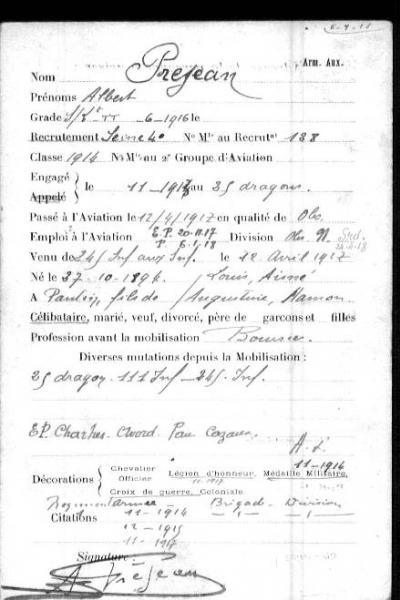 Arm. Aux.
Nom Préjean
Prénoms Albert
Grade S/Lt TT 6-1916 le
Recrutement Seine 4e No Mle au Recrutt 188
Classe 1914 No Mle au 2e Groupe d'Aviation
Engagé
Appelé } le 11-1913 au 25 dragons.
Passé à l'Aviation le 12/4/1917 en qualité de Obs.
Emploi à l'Aviation E.P. 20.11.17 Division Obs. N.
P. 6-1-18
Venu de 245 Inf. aux Inf. le 12 Avril 1917
Né le 27-10-1894 Louis, Aimé
A Pantin, fils de Augustine, Hamon
Célibataire, marié, veuf, divorcé, père de garçons et filles
Profession avant la mobilisation Bourse
Diverses mutations depuis la Mobilisation :
25 dragon. 111 Inf - 245. Inf.
EP. Chartres. Avord. Pau Cazaux.
A. F.
11-1916
Décorations { Chevalier Officier Légion d'honneur, Médaille Militaire,
11-1917
Croix de guerre, Coloniale
Regiment Armée - Brigade - Division
Citations 11-1914 - 1 - - 1 -
12-1915
11-1917
Signature :
A Préjean